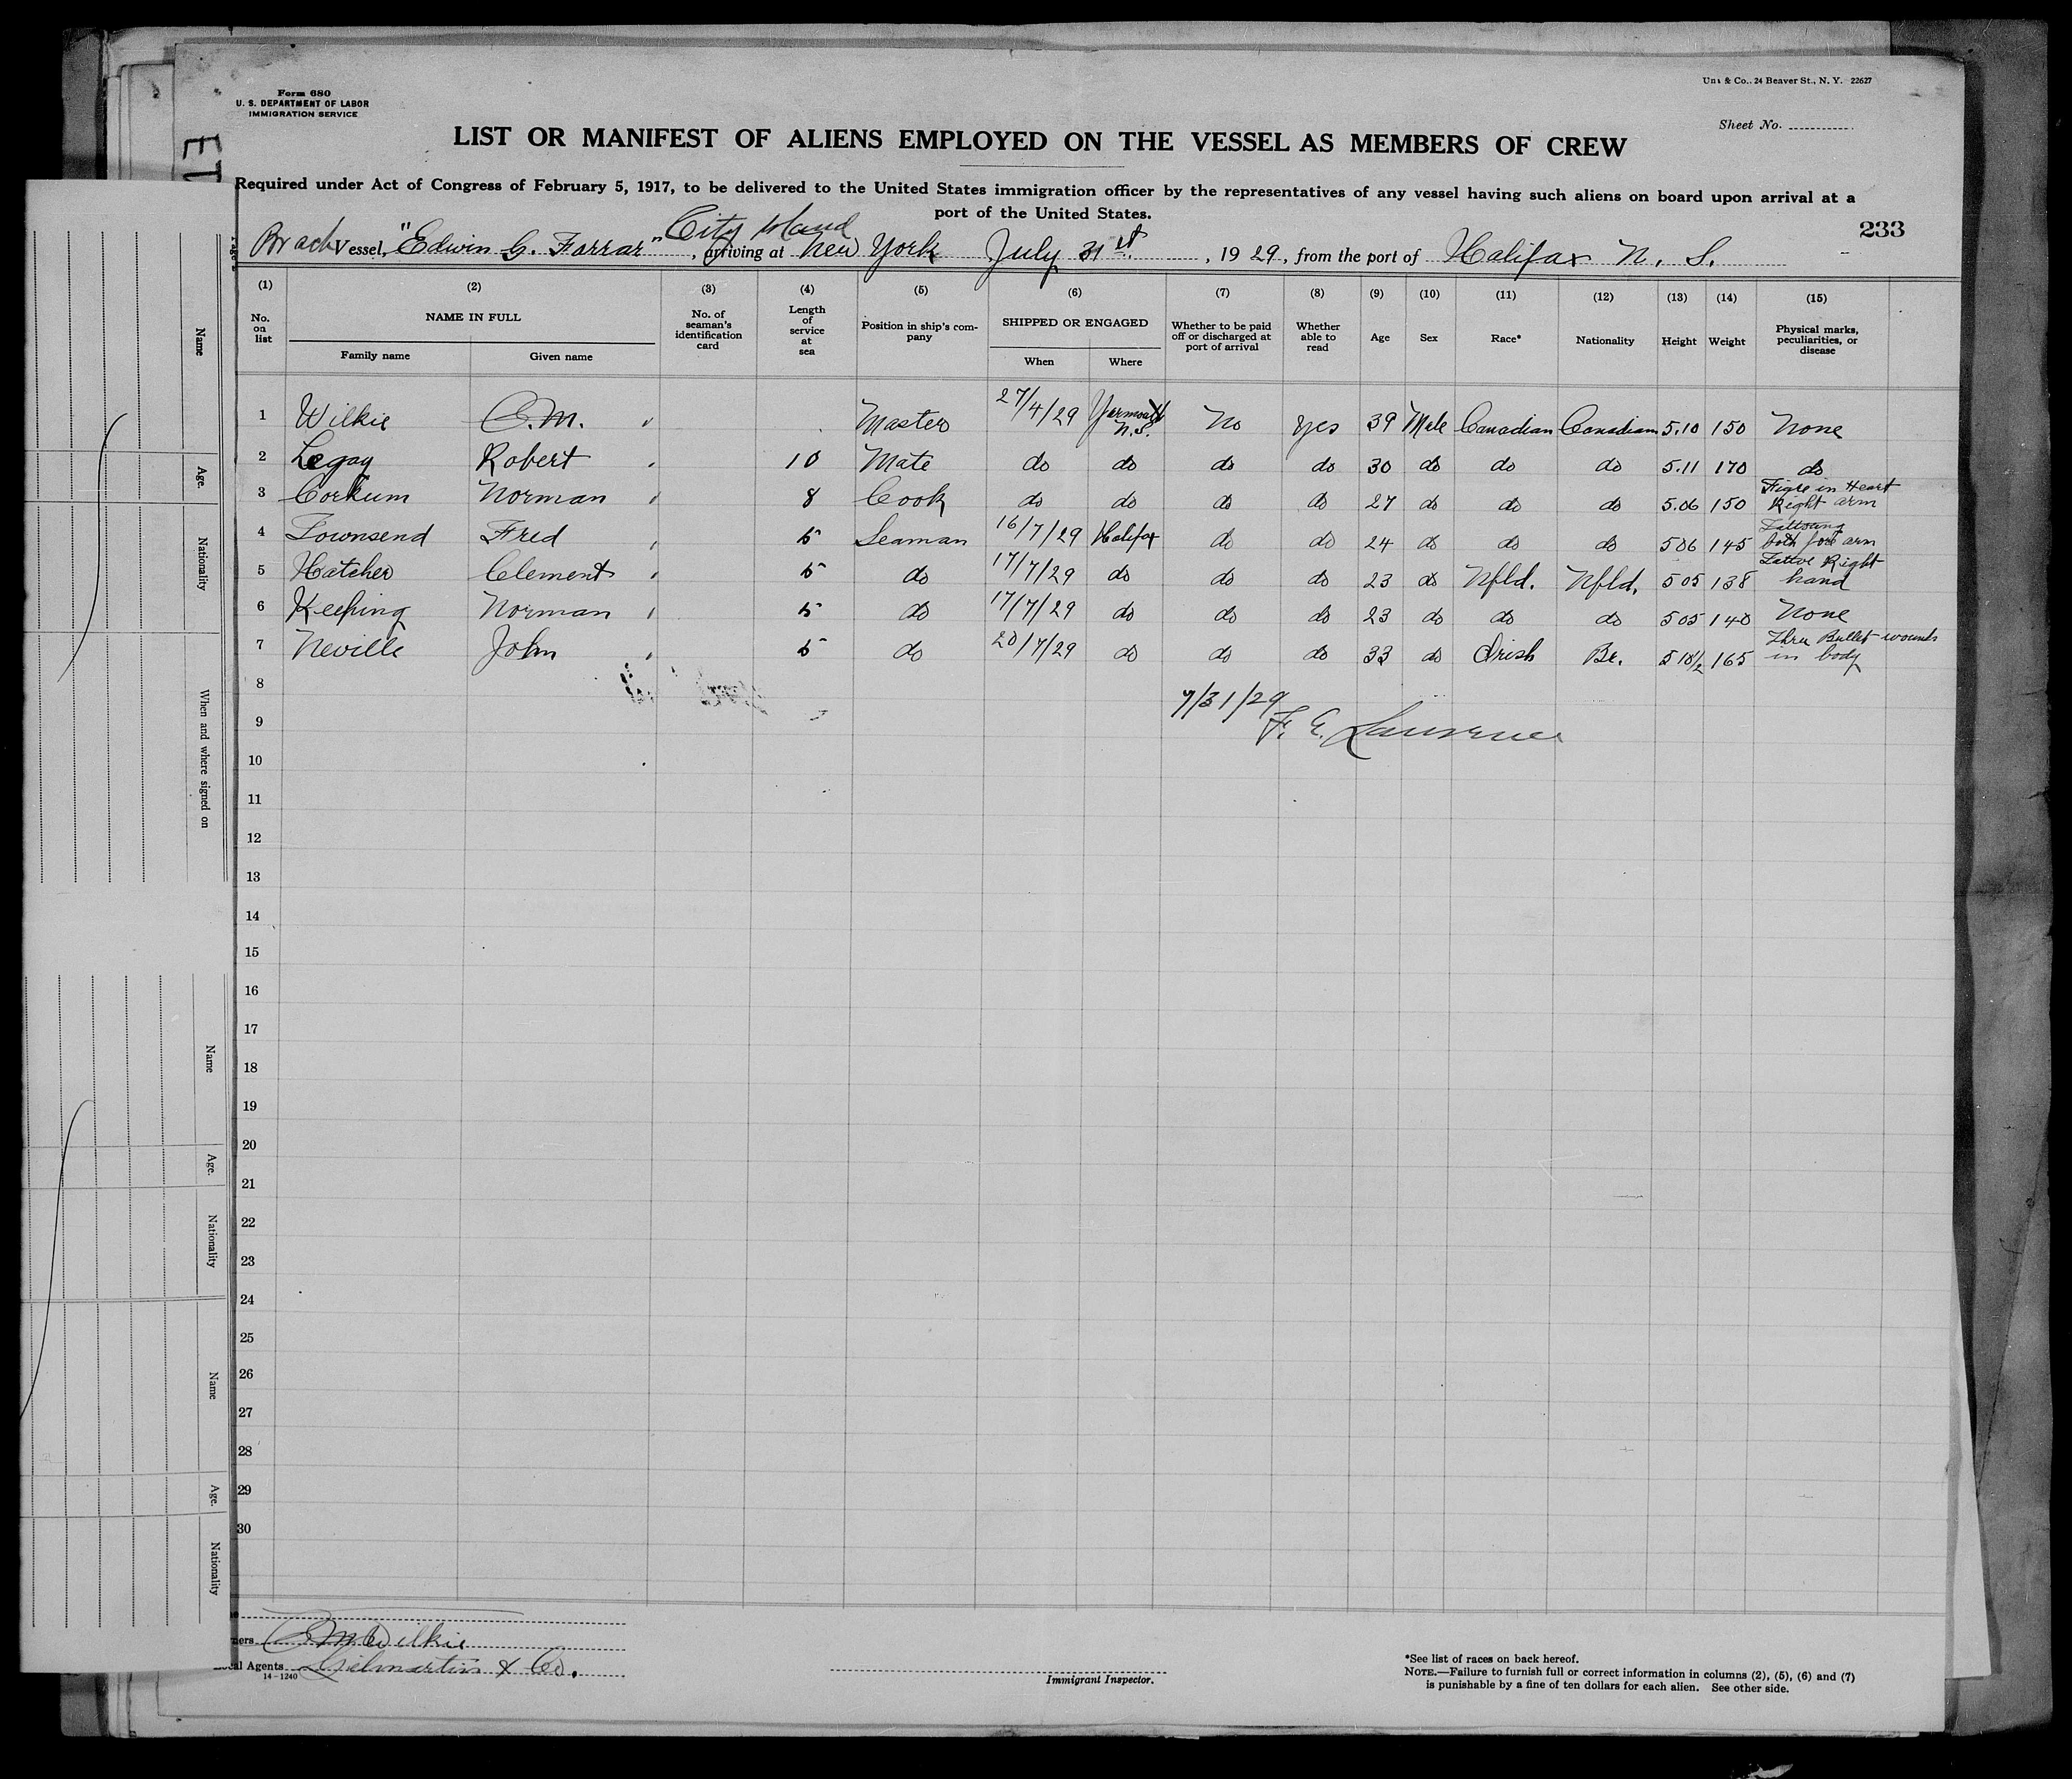 Form 680
U. S. DEPARTMENT OF LABOR
IMMIGRATION SERVICE
& Co., 24 Beaver St., N. Y. 22627
Sheet No.
LIST OR MANIFEST OF ALIENS EMPLOYED ON THE VESSEL AS MEMBERS OF CREW
Required under Act of Congress of February 5, 1917, to be delivered to the United States immigration officer by the representatives of any vessel having such aliens on board upon arrival at a
port of the United States.
233
City Island
Vessel, "Edwin G. Farrar", arriving at New York July 31st, 1929, from the port of Halifax N. S.
(1) (2) (3) (4) (5) (6) (7) (8) (9) (10) (11) (12) (13) (14) (15)
No. on list NAME IN FULL Family name Given name No. of seaman's identification card Length of service at sea Position in ship's company SHIPPED OR ENGAGED When Where Whether to be paid off or discharged at port of arrival Whether able to read Age Sex Race* Nationality Height Weight Physical marks, peculiarities, or disease
1 Wilkie C.M. Master 27/4/29 Yarmouth N.S. No Yes 39 Male Canadian Canadian 5.10 150 None
2 Legay Robert 10 Mate do do do do 30 do do do 5.11 170 do
3 Corkum Norman 8 Cook do do do do 27 do do do 5.06 150 Figre in Heart Right arm
4 Townsend Fred 5 Seaman 16/7/29 Halifax do do 24 do do do 506 145 Tattoung both fore arm
5 Hatcher Clement 5 do 17/7/29 do do do 23 do Nfld. Nfld. 505 138 Tattoe Right hand
6 Keeping Norman 5 do 17/7/29 do do do 23 do do do 505 140 None
7 Neville John 5 do 20/7/29 do do do 33 do Irish Br. 5 10 1/2 165 Thre Bullet wounds in body
8
7/31/29
9
F. E. Lawrence
10
11
12
13
14
15
16
17
18
19
20
21
22
23
24
25
26
27
28
29
30
C M Wilkie
Local Agents Gilmartin & Co.
14-1240
Immigrant Inspector.
*See list of races on back hereof.
NOTE.—Failure to furnish full or correct information in columns (2), (5), (6) and (7)
is punishable by a fine of ten dollars for each alien. See other side.
Name
Age.
Nationality
When and where signed on
Name
Age.
Nationality
Name
Age.
Nationality